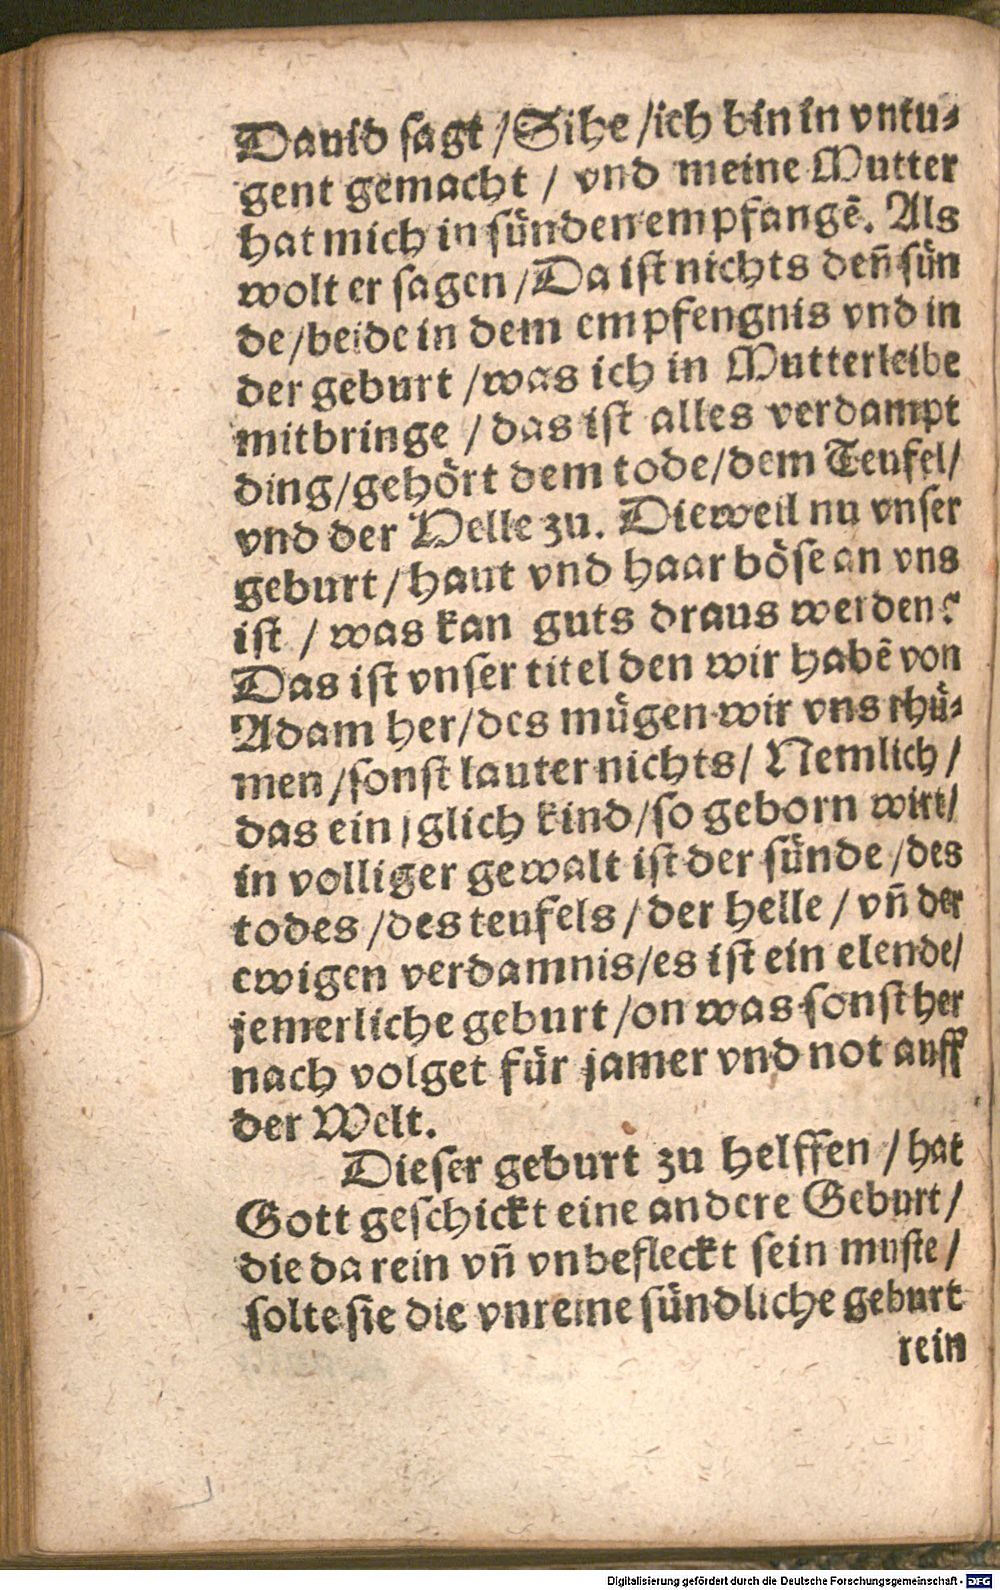 Dauid sagt /Sihe /ich bin in vntu-
gent gemacht / vnd meine Mutter
hat mich in sünden empfangē. Als
wolt er sagen /Da ist nichts deñ sün
de/beide in dem empfengnis vnd in
der geburt /was ich in Mutterleibe
mitbringe / das ist alles verdampt
ding/gehört dem tode/dem Teufel/
vnd der Helle zu. Dieweil nu vnser
geburt / haut vnd haar böse an vns
ist / was kan guts draus werden?
Das ist vnser titel den wir habē von
Adam her/des mügen wir vns rhü-
men /sonst lauter nichts/ Nemlich/
das ein iglich kind/so geborn wirt/
in volliger gewalt ist der sünde /des
todes /des teufels / der helle / vñ der
ewigen verdamnis/es ist ein elende/
jemerliche geburt /on was sonst her
nach volget für jamer vnd not auff
der Welt.
Dieser geburt zu helffen / hat
Gott geschickt eine andere Geburt/
die da rein vñ vnbefleckt sein muste/
solte sie die vnreine sündliche geburt
rein
Digitalisierung gefördert durch die Deutsche Forschungsgemeinschaft - DFG